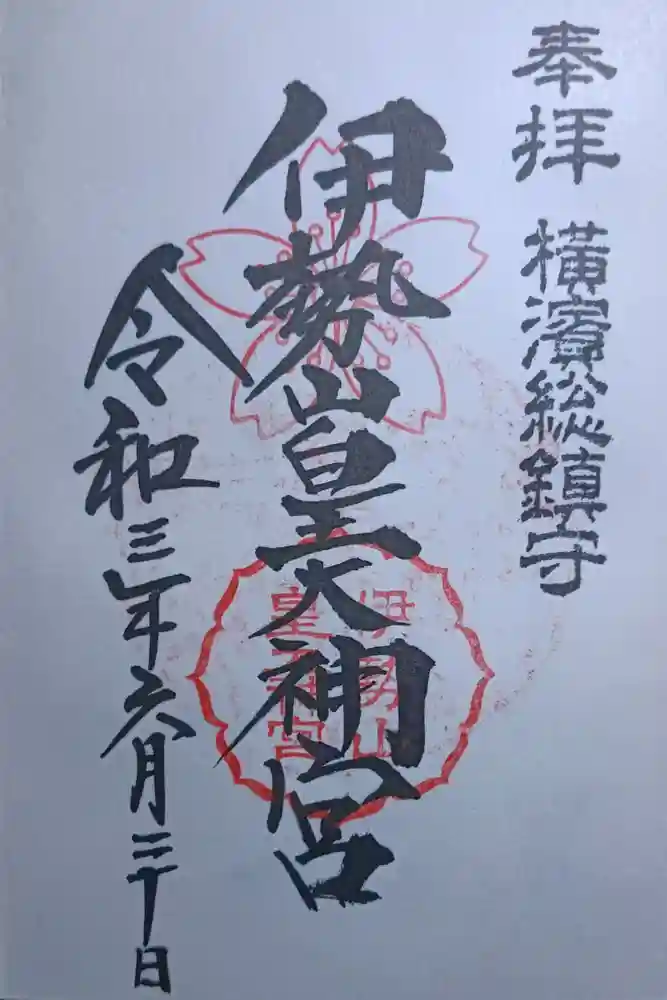 奉拝
横濱総鎮守
伊勢山皇大神宮
伊勢山
皇大神宮
令和三年六月三十日